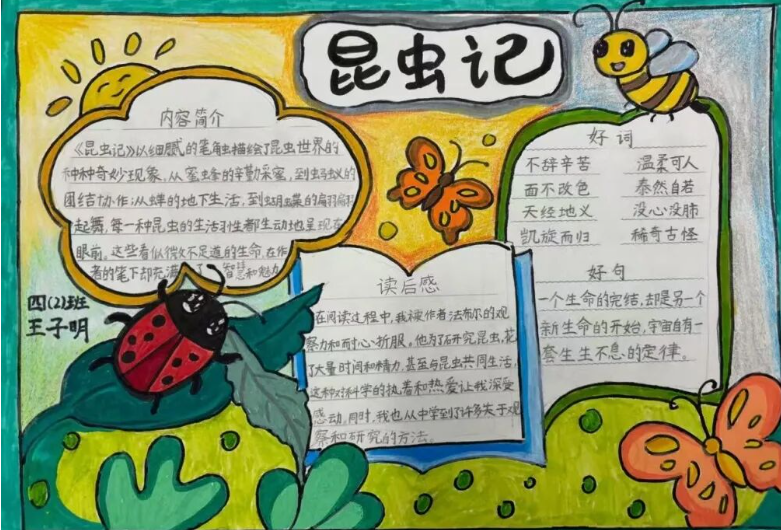 昆虫记
内容简介
《昆虫记》以细腻的笔触描绘了昆虫世界的
种种奇妙现象,从蜜蜂的辛勤采蜜,到虫蚁的
团结协作;从蝉的地下生活,到蝴蝶的翩翩
起舞,每一种昆虫的生活习性都生动地呈现在
眼前。这些看似微不足道的生命,在作
者的笔下却充满了智慧和魅力
四(2)班
王子明
读后感
在阅读过程中,我被作者法布尔的观
察力和耐心折服。他为了研究昆虫,花
了大量时间和精力,甚至与昆虫共同生活,
这种对科学的执着和热爱让我深受
感动。同时,我也从中学到了许多关于观
察和研究的方法。
好词
不辞辛苦 温柔可人
面不改色 泰然自若
天经地义 没心没肺
凯旋而归 稀奇古怪
好句
一个生命的完结,却是另一个
新生命的开始,宇宙自有一
套生生不息的定律。